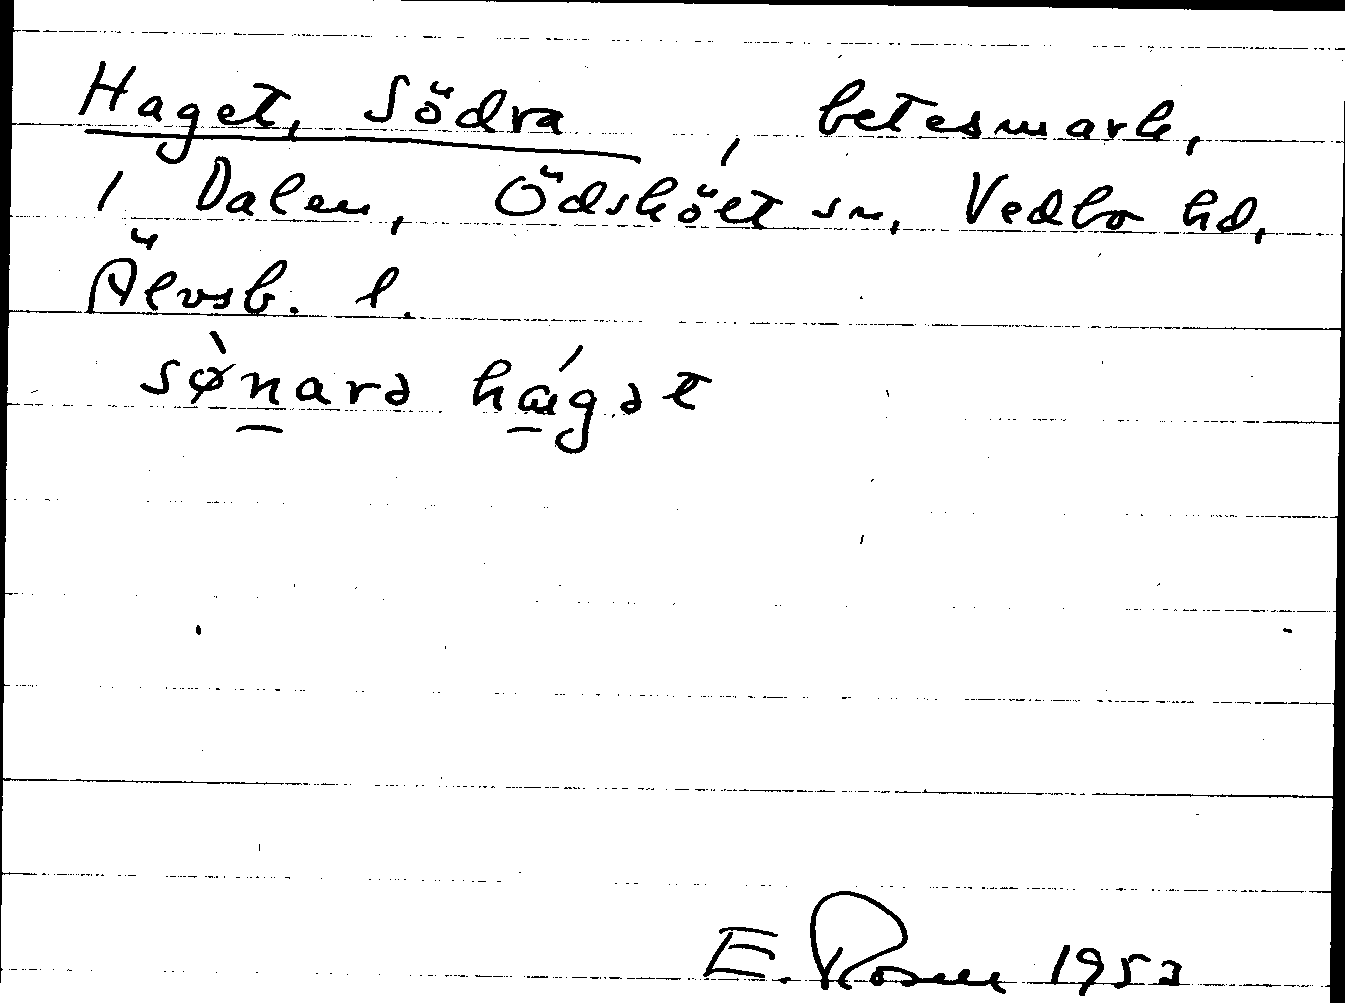 Haget, Södra, betesmark,
1 Dalen, Ödsköłt sn, Vedbo hd,
Älvsb. l.
sø̀n̲arə hǽ̲gət
E. Rosell 1953